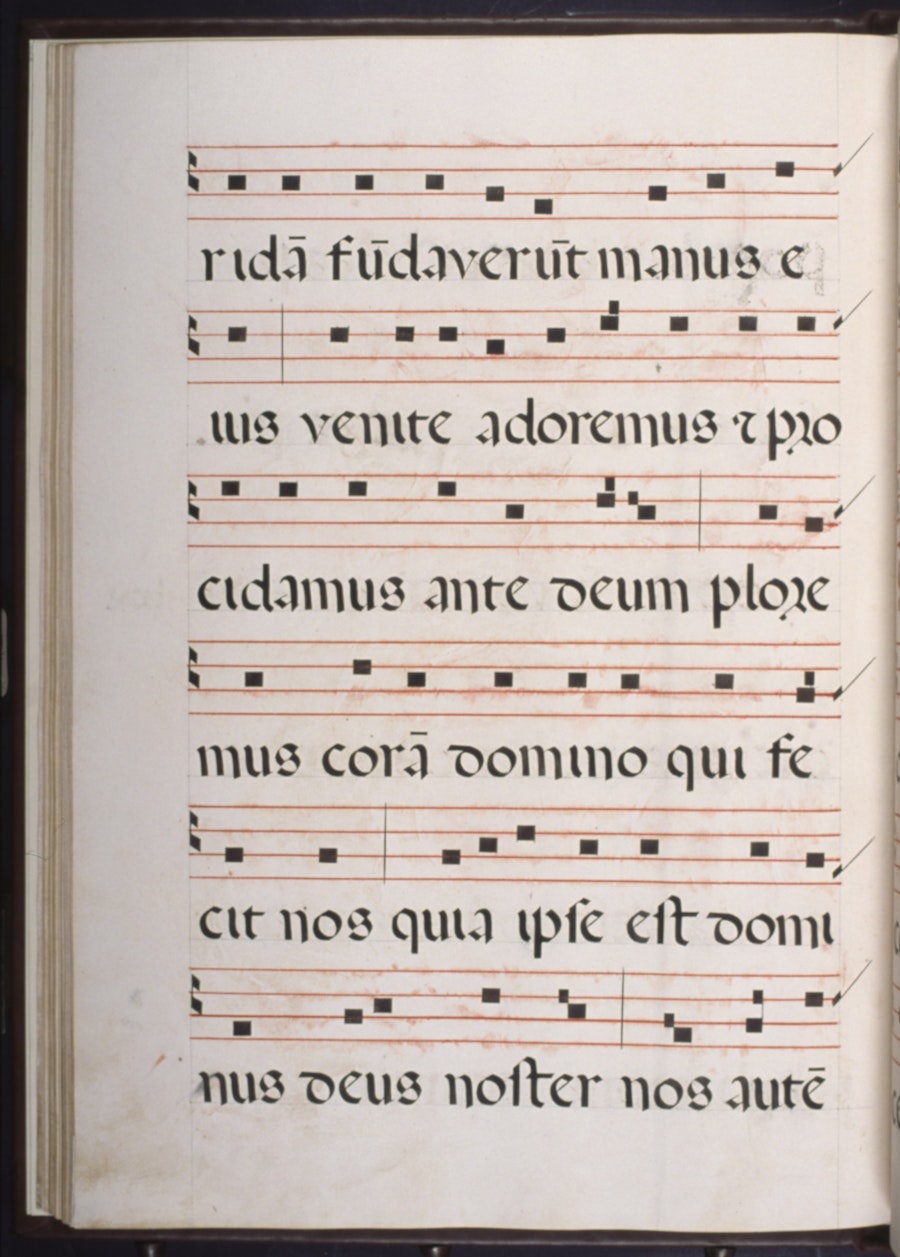 ridā fūdaverūt manus e
ius venite adoremus ⁊ pꝛo
cidamus ante deum ploꝛe
mus corā domino qui fe
cit nos quia ipſe eſt domi
nus deus noſter nos autē